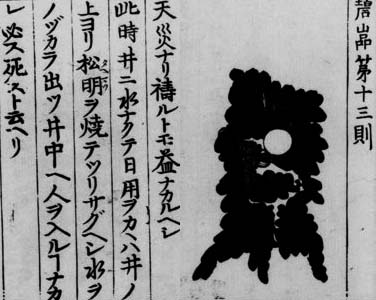 碧喦第十三則
天災ナリ禱ルトモ益ナカルヘシ
此時井ニ水ナクテ日用ヲカヽハ井ノ
上ヨリ松明ヲ焼テツリサグヘシ水ヲ
ノヅカラ出ツ井中ヘ人ヲ入ルヿナカ
レ必ス死スト云ヘリ